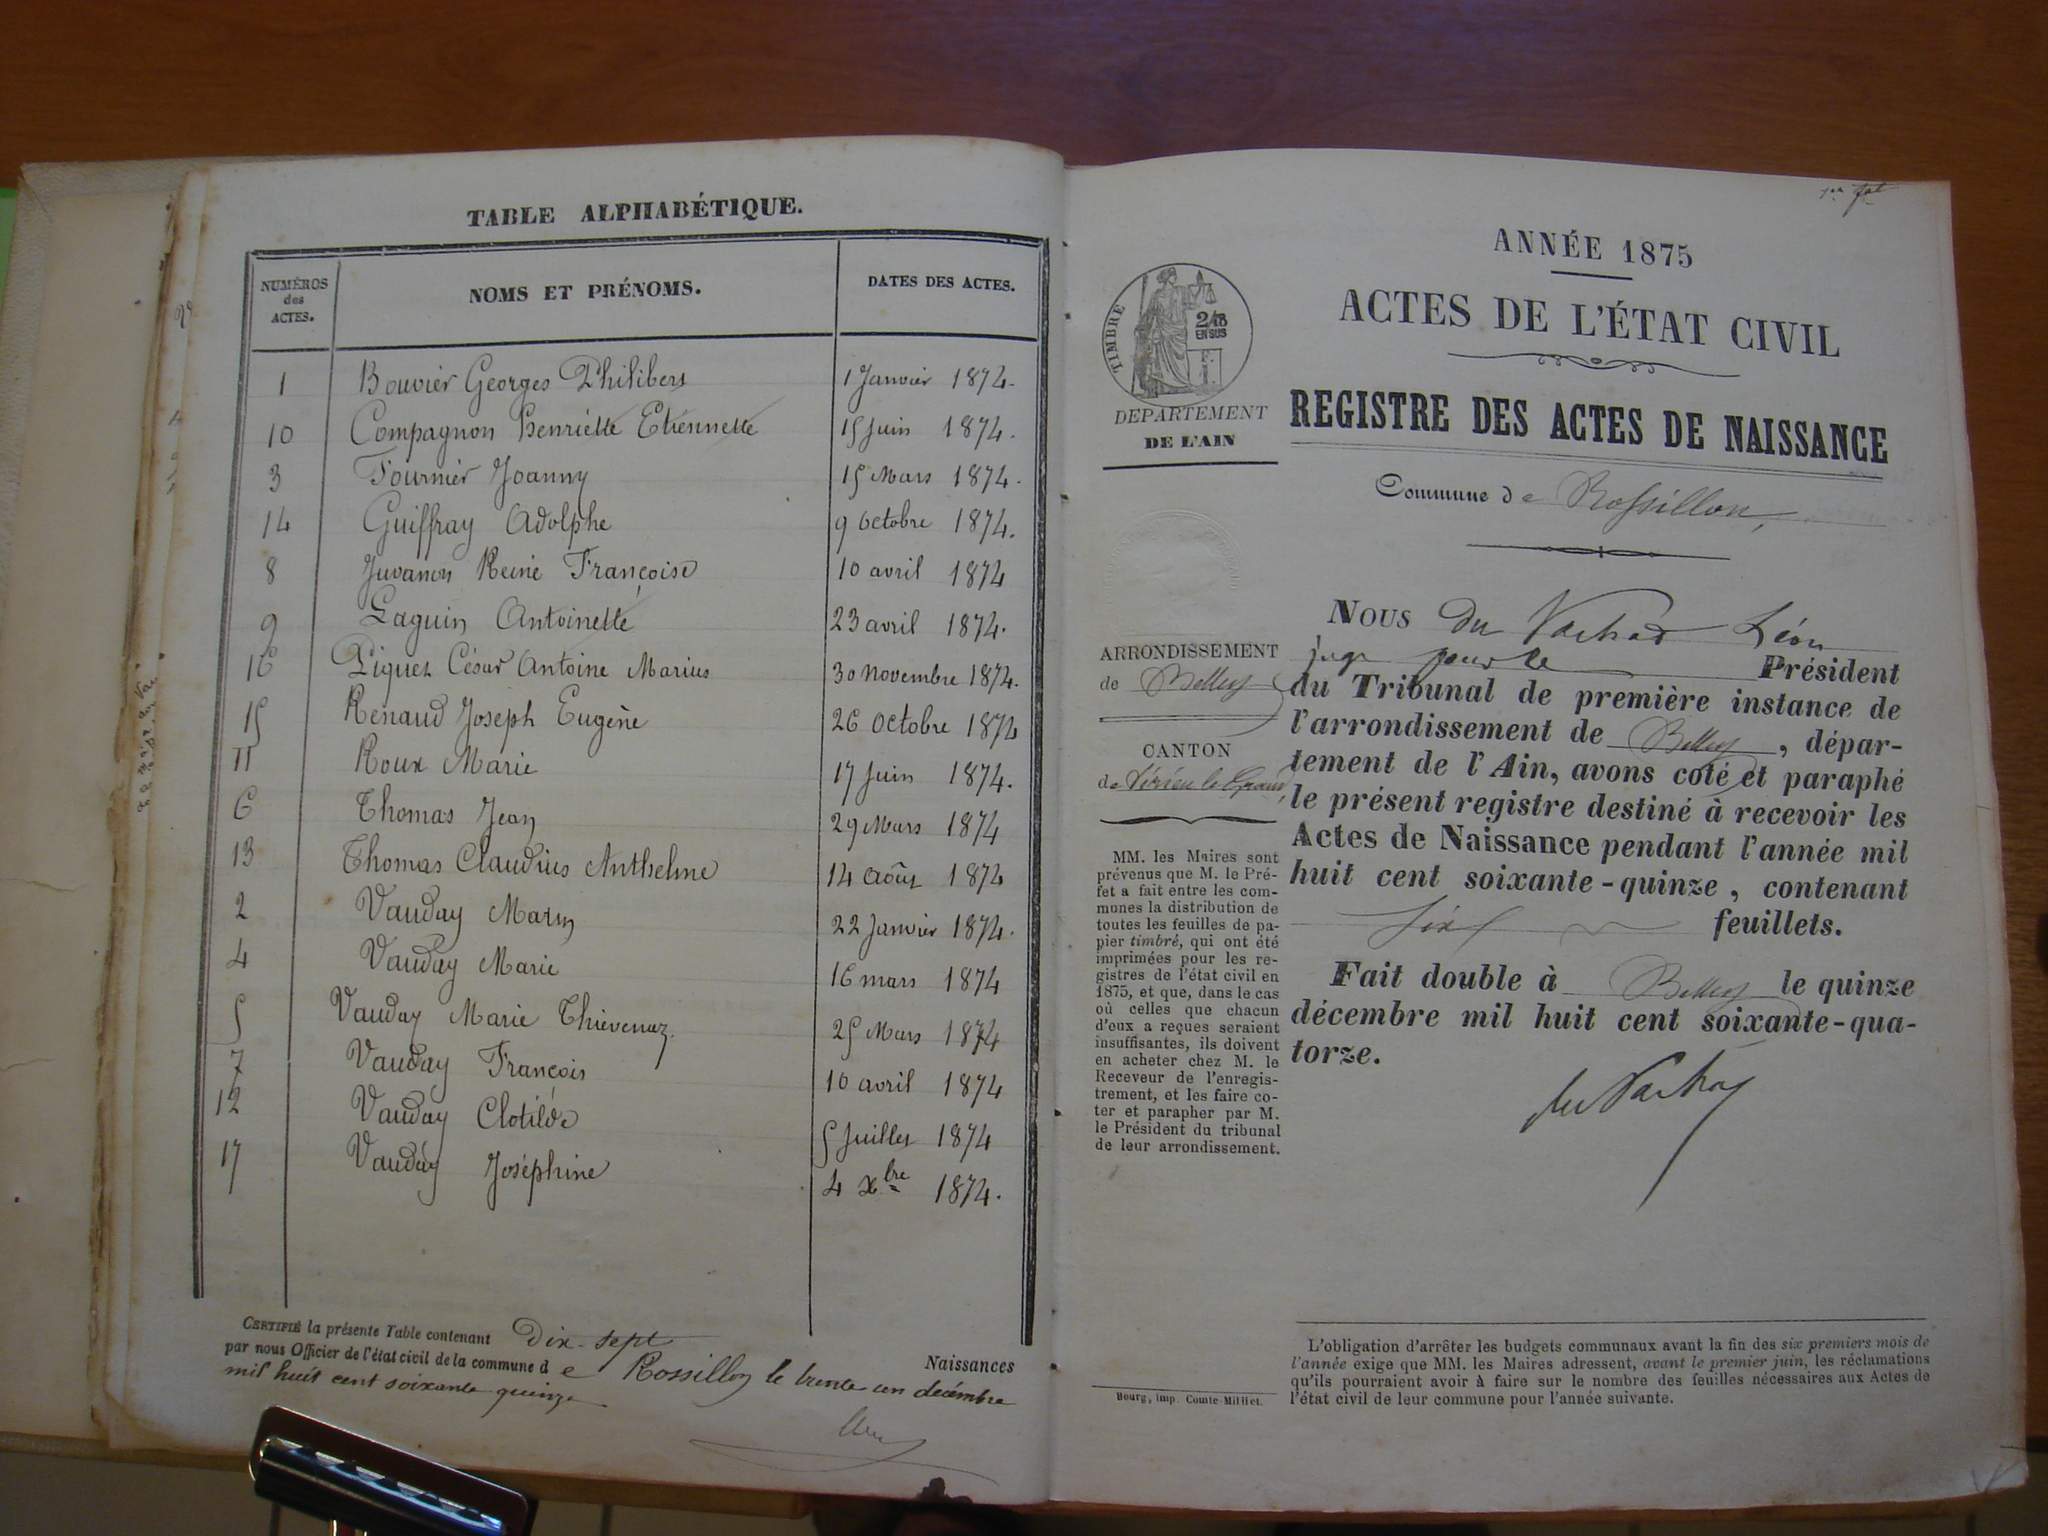 TABLE ALPHABÉTIQUE.
NUMÉROS des ACTES. NOMS ET PRÉNOMS. DATES DES ACTES.
1 Bouvier Georges Philibert 1 Janvier 1874.
10 Compagnon Henriette Etiennette 15 Juin 1874.
3 Fournier Joanny 15 Mars 1874.
14 Guiffray Adolphe 9 Octobre 1874.
8 Juvanon Reine Françoise 10 avril 1874
9 Laguin Antoinette 23 avril 1874.
16 Piquet César Antoine Marius 30 Novembre 1874.
15 Renaud Joseph Eugène 26 Octobre 1874
11 Roux Marie 17 Juin 1874.
6 Thomas Jean 29 Mars 1874
13 Thomas Claudius Anthelme 14 Août 1874
2 Vauday Marin 22 Janvier 1874.
4 Vauday Marie 16 mars 1874
5 Vauday Marie Thievenaz 25 Mars 1874
7 Vauday François 10 avril 1874
12 Vauday Clotilde 5 Juillet 1874
17 Vauday Joséphine 4 Xbre 1874.
CERTIFIÉ la présente Table contenant Dix-sept Naissances
par nous Officier de l'état civil de la commune de Rossillon le trente un decémbre
mil huit cent soixante quinze
ANNÉE 1875
ACTES DE L'ÉTAT CIVIL
REGISTRE DES ACTES DE NAISSANCE
Commune de Rossillon,
TIMBRE
2/10
EN SUS
DEPARTEMENT
DE L'AIN
ARRONDISSEMENT
de Belley
CANTON
de Virieu le Grand,
MM. les Maires sont
prévenus que M. le Pré-
fet a fait entre les com-
munes la distribution de
toutes les feuilles de pa-
pier timbré, qui ont été
imprimées pour les re-
gistres de l'état civil en
1875, et que, dans le cas
où celles que chacun
d'eux a reçues seraient
insuffisantes, ils doivent
en acheter chez M. le
Receveur de l'enregis-
trement, et les faire co-
ter et parapher par M.
le Président du tribunal
de leur arrondissement.
Bourg, imp. Comte-Milliet.
NOUS du Vachat Léon
juge pour le Président
du Tribunal de première instance de
l'arrondissement de Belley, dépar-
tement de l'Ain, avons coté et paraphé
le présent registre destiné à recevoir les
Actes de Naissance pendant l'année mil
huit cent soixante-quinze, contenant
six feuillets.
Fait double à Belley le quinze
décembre mil huit cent soixante-qua-
torze.
du Vachat
L'obligation d'arrêter les budgets communaux avant la fin des six premiers mois de
l'année exige que MM. les Maires adressent, avant le premier juin, les réclamations
qu'ils pourraient avoir à faire sur le nombre des feuilles nécessaires aux Actes de
l'état civil de leur commune pour l'année suivante.